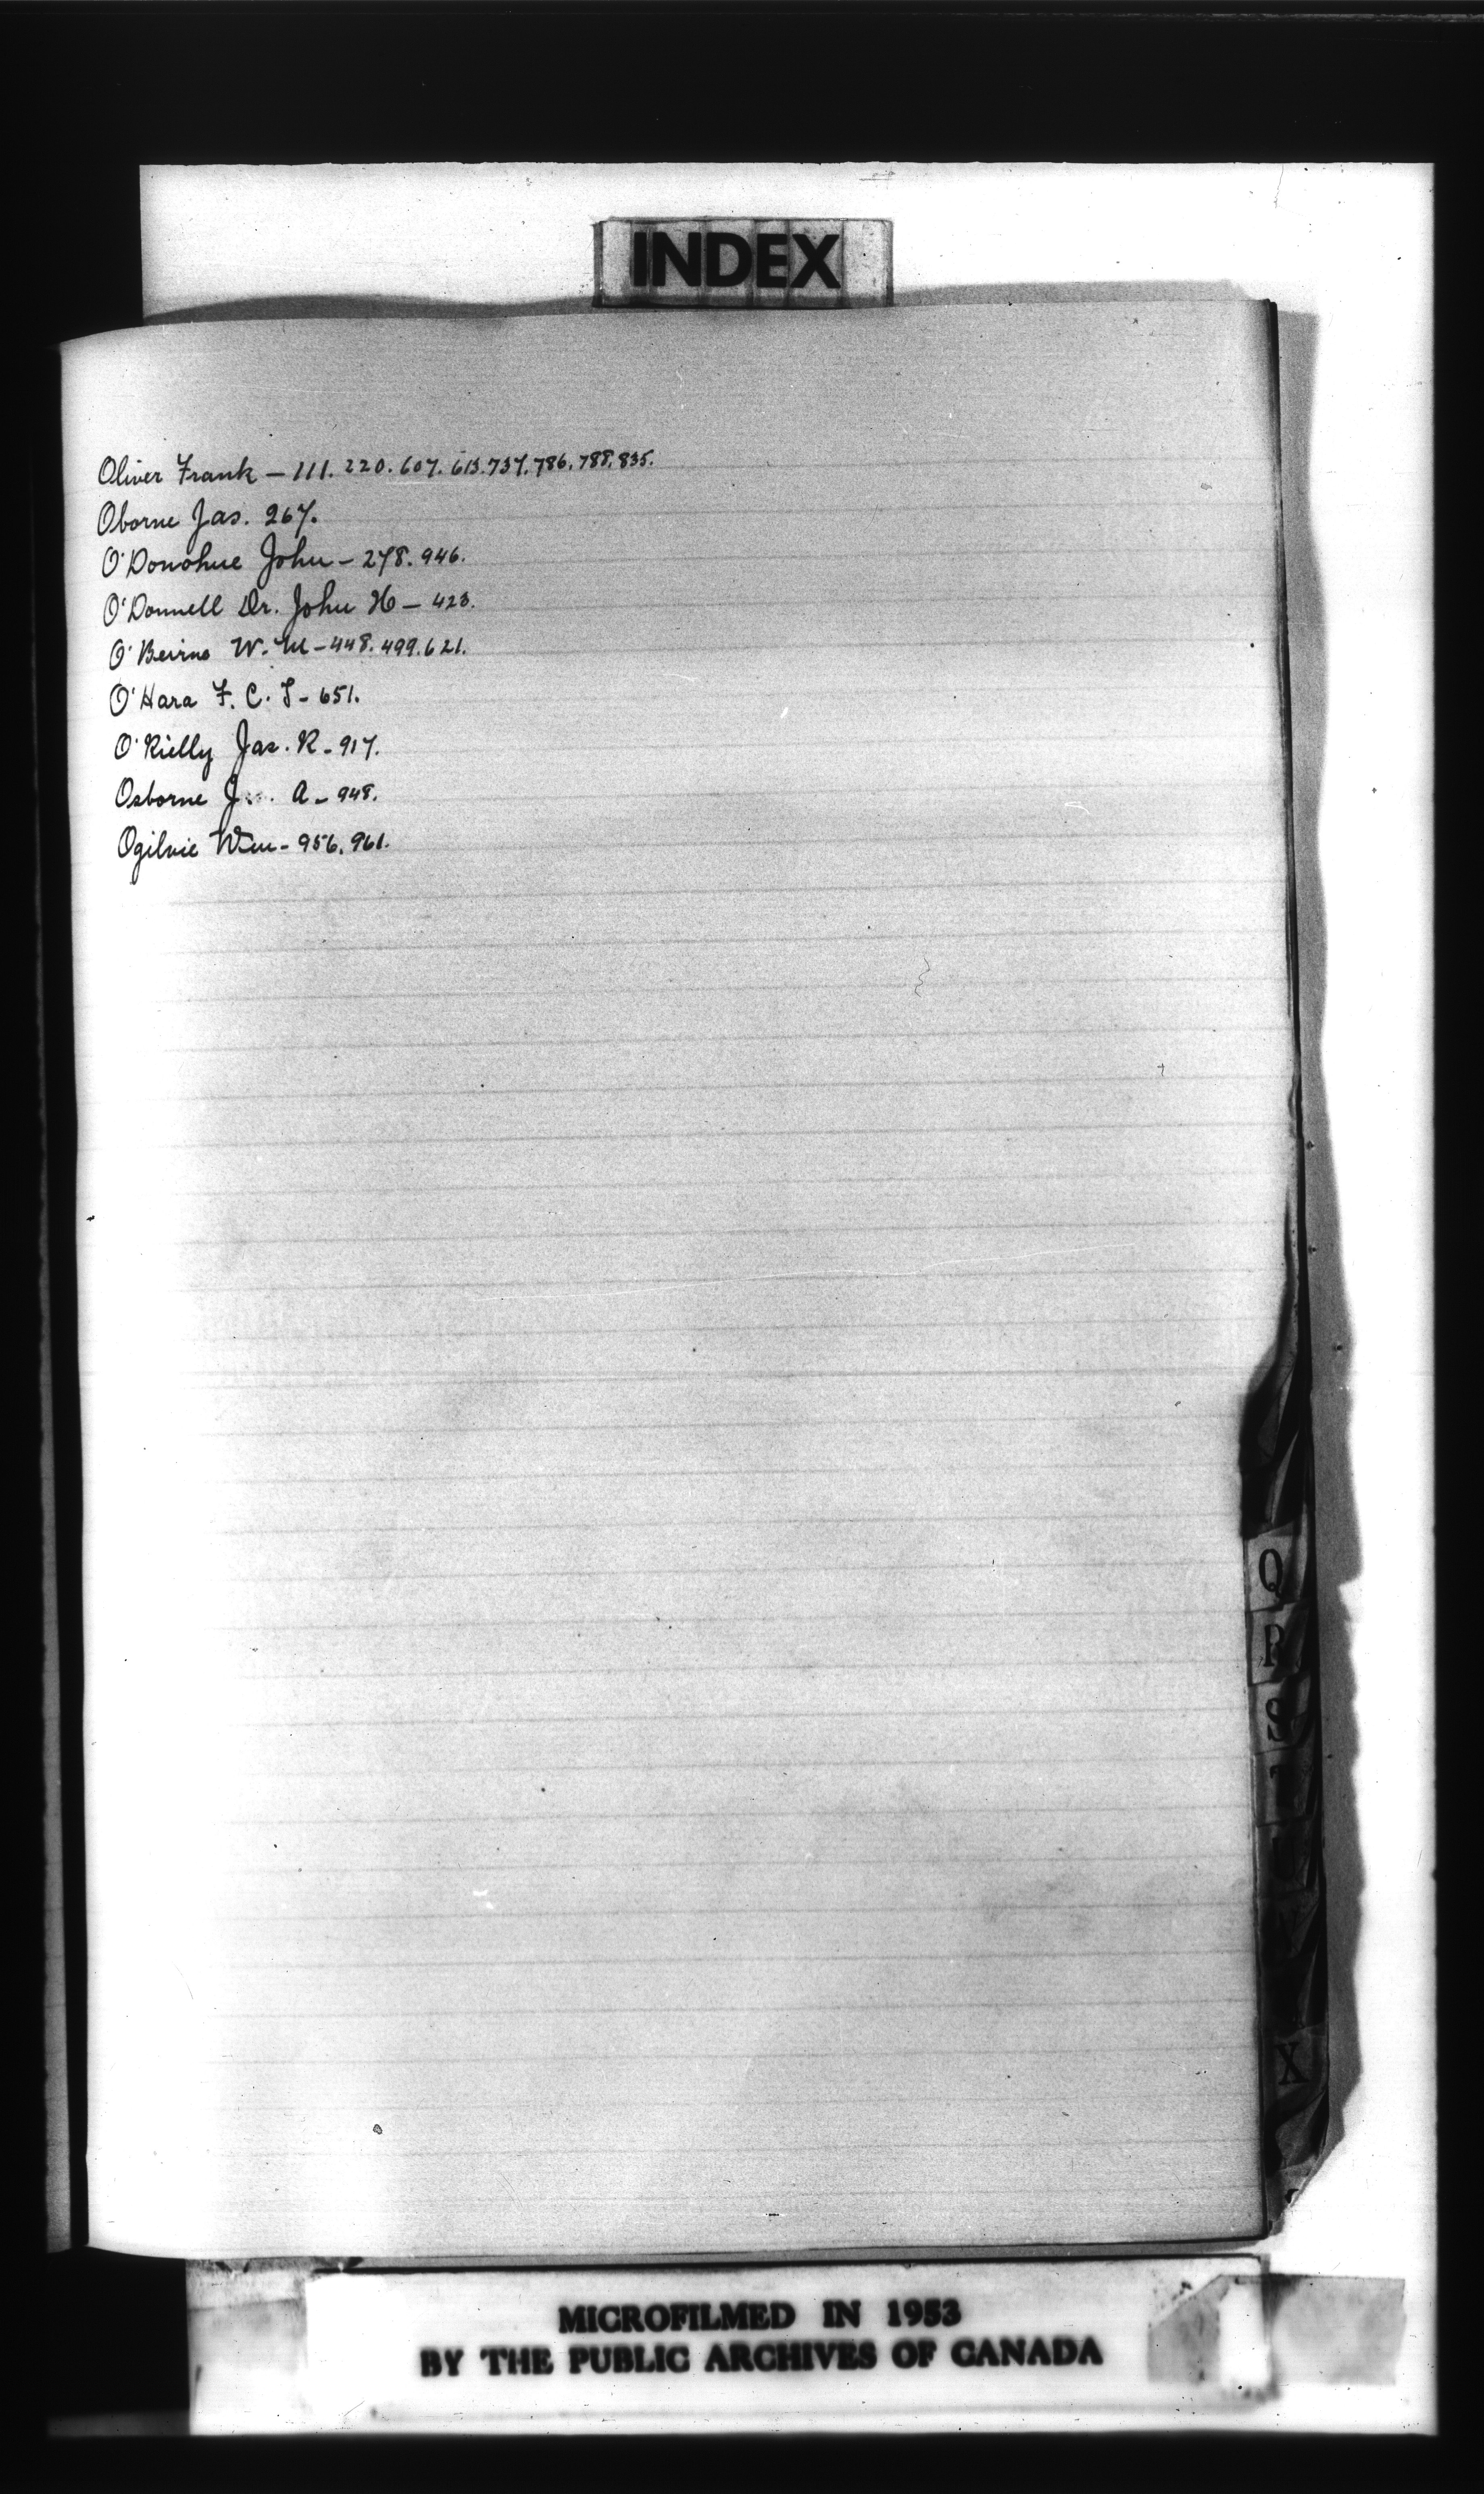 INDEX
Oliver Frank - 111. 220. 607. 613. 737. 786. 788. 835.
Oborne Jas. 267.
O'Donohue John - 278. 946.
O'Donnell Dr. John H - 423.
O'Beirne W. M - 448. 499. 621.
O'Hara F. C. T - 651.
O'Rielly Jas. R - 917.
Osborne A - 948.
Ogilvie Wm - 956. 961.
Q
R
S
T
U
X
MICROFILMED IN 1953
BY THE PUBLIC ARCHIVES OF CANADA